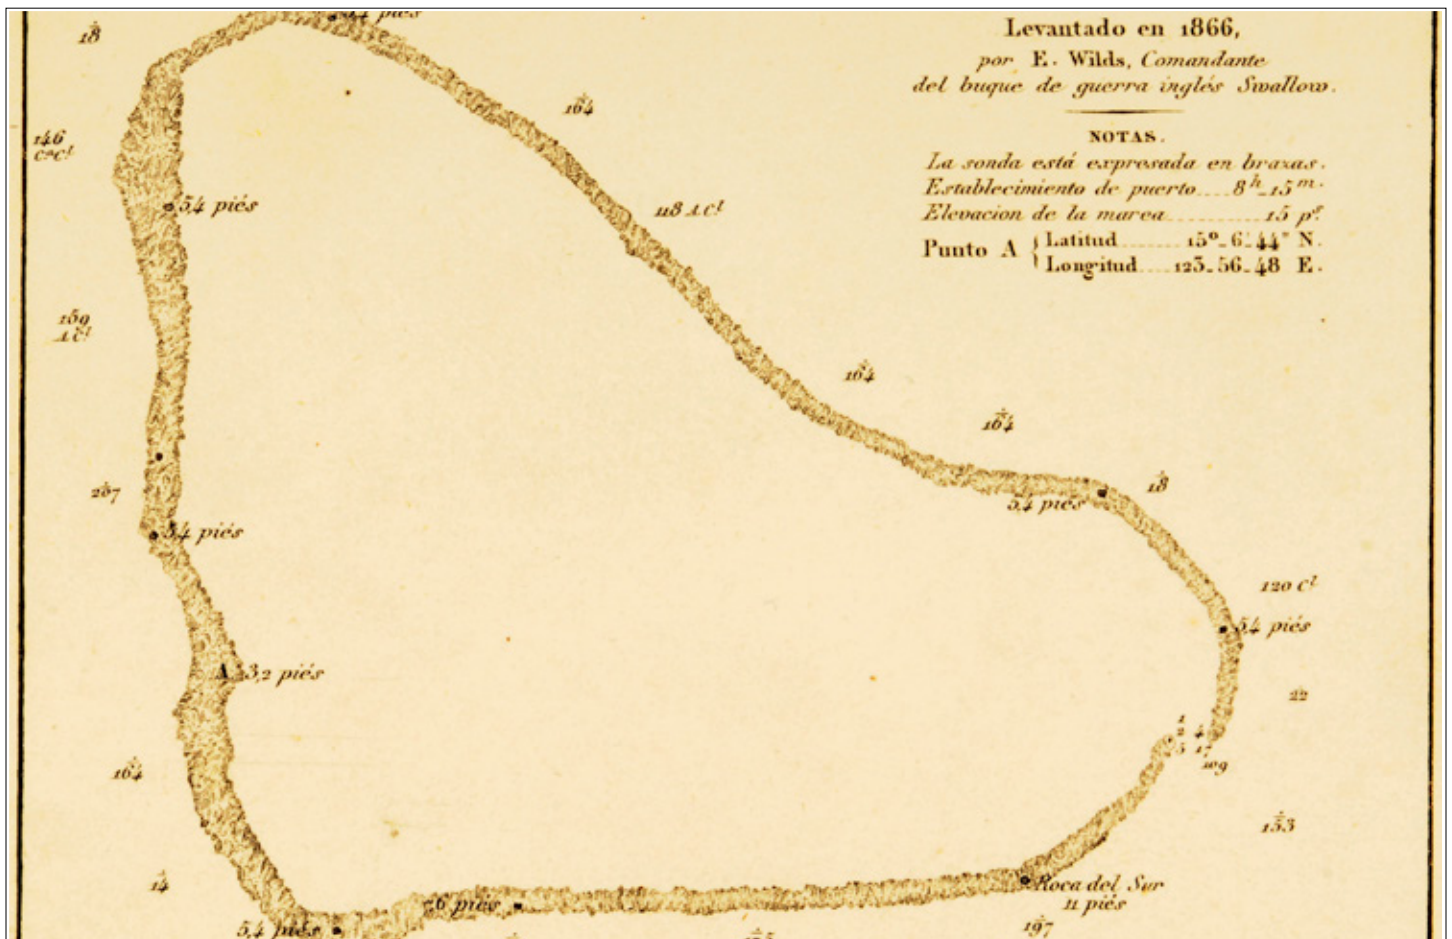 5,4 piés
18
Levantado en 1866,
por E. Wilds, Comandante
del buque de guerra inglés Swallow.
NOTAS.
La sonda está expresada en brazas.
Establecimiento de puerto....8ʰ_15ᵐ.
Elevacion de la marea............15 pˢ.
Punto A { Latitud........15º_6'_44" N.
Longitud....123_56_48 E.
164
146
5,4 piés
118 A Cˡ
159
A Cˡ
164
164
207
18
5,4 piés
5,4 piés
120 Cˡ
5,4 piés
A 3,2 piés
22
1
2 4
5 17
109
164
153
14
Roca del Sur
11 piés
7,6 piés
5,4 piés
197